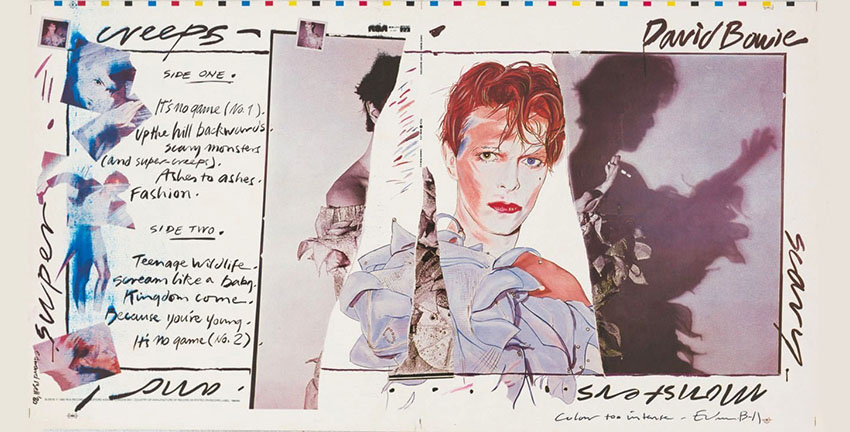 creeps
RCA
David Bowie
SIDE ONE.
It's no game (No. 1).
up the hill backwards.
scary monsters
(and super-creeps).
Ashes to ashes.
Fashion.
SIDE TWO.
Teenage wildlife.
scream like a baby.
Kingdom come.
Because you're young.
It's no game (No. 2)
super
and
scary
monsters
Edward Bell '80
Colour too intense -